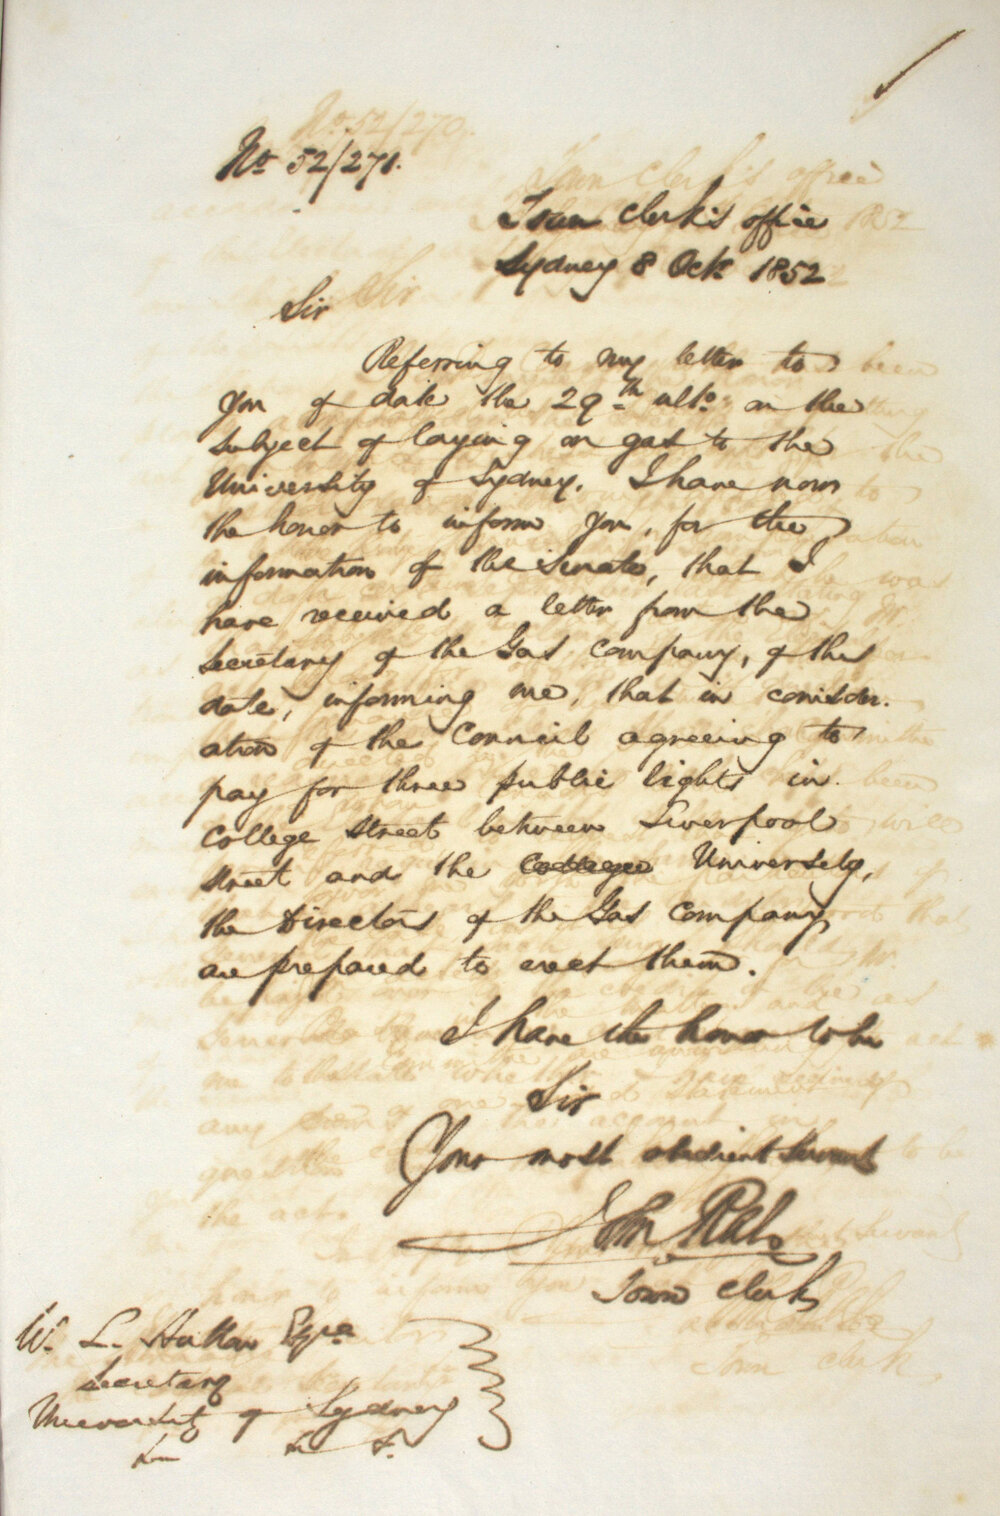 No 52/271.
Town Clerk's office
Sydney 8 Octr 1852
Sir
Referring to my letter to
you of date the 29th ulto on the
subject of laying on gas to the
University of Sydney. I have now
the honor to inform you, for the
information of the Senate, that I
have received a letter from the
Secretary of the Gas Company, of this
date, informing me, that in consider.
ation of the Council agreeing to
pay for three public lights in
College Street between Liverpool
Street and the College University,
the Directors of the Gas Company
are prepared to erect them.
I have the honor to be
Sir
Your most obedient Servant
John
Town Clerk
W. L. Esqre
Secretary
University of Sydney